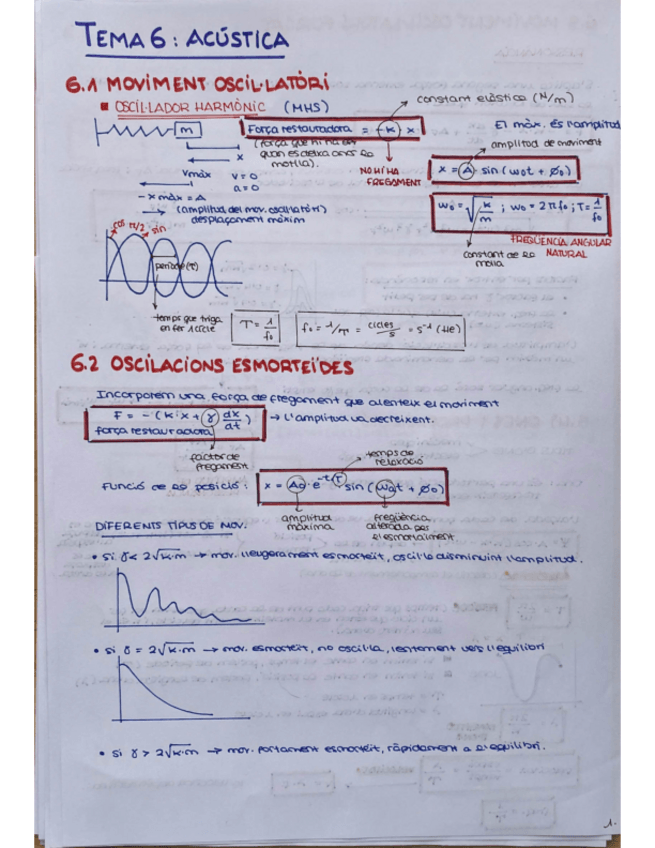 TEMA 6: ACÚSTICA
6.1 MOVIMENT OSCIL·LATÒRI
OSCIL·LADOR HARMÒNIC (MHS)
constant elàstica (N/m)
m
Força restauradora = -k x
(força que hi ha
quan es deixa anar la
molla).
NO HI HA
FREGAMENT
El màx. és l'amplitud
amplitud de moviment
x = A sin(ω0t + ø0)
x
vmàx v = 0
a = 0
- x màx = A
(amplitud del mov. oscil·latòri)
desplaçament màxim
ω0 = √k/m ; ω0 = 2πf0 ; T = 1/f0
FREQÜÈNCIA ANGULAR
NATURAL
constant de la
molla
cos π/2 sin
període (T)
temps que triga
en fer 1 cicle
T = 1/f0
f0 = 1/T = cicles/s = s⁻¹ (Hz)
6.2 OSCILACIONS ESMORTEÏDES
Incorporem una força de fregament que alenteix el moviment
F = -(k·x + γ dx/dt) → L'amplitud va decreixent.
força restauradora
factor de
fregament
temps de
relaxació
Funció de la posició: x = A0·e^-t/τ sin(ωat + ø0)
amplitud
màxima
freqüència
alterada per
l'esmorteïment
DIFERENTS TIPUS DE MOV:
• Si γ < 2√k·m → mov. lleugerament esmorteït, oscil·la disminuint l'amplitud.
• Si γ = 2√k·m → mov. esmorteït, no oscil·la, lentament vers l'equilibri
• Si γ > 2√k·m → mov. fortament esmorteït, ràpidament a l'equilibri.
1.